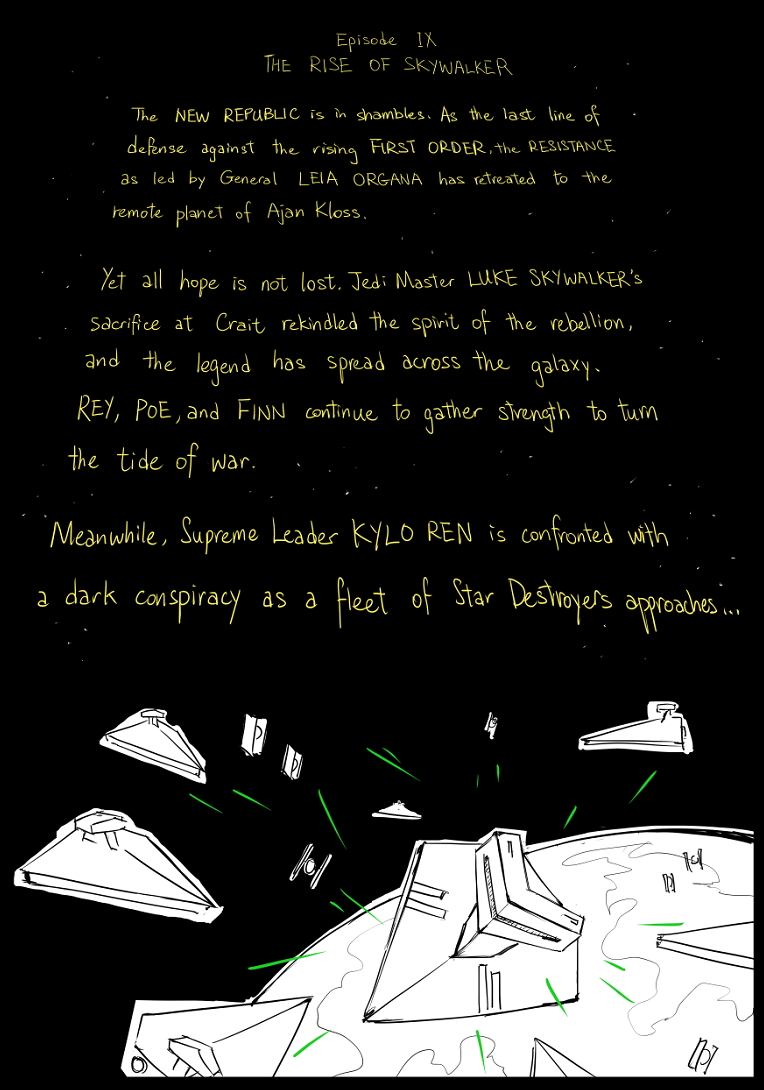 Episode IX
THE RISE OF SKYWALKER
The NEW REPUBLIC is in shambles. As the last line of
defense against the rising FIRST ORDER, the RESISTANCE
as led by General LEIA ORGANA has retreated to the
remote planet of Ajan Kloss.
Yet all hope is not lost. Jedi Master LUKE SKYWALKER's
sacrifice at Crait rekindled the spirit of the rebellion,
and the legend has spread across the galaxy.
REY, POE, and FINN continue to gather strength to turn
the tide of war.
Meanwhile, Supreme Leader KYLO REN is confronted with
a dark conspiracy as a fleet of Star Destroyers approaches...